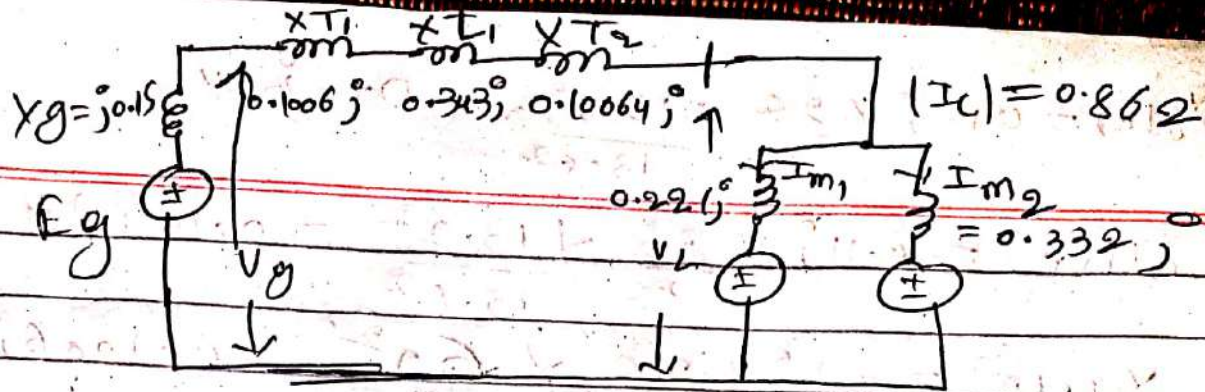 XT1 XL1 XT2
Xg=j0.15 0.1006j 0.343j 0.10064j |IL|=0.862
0.221j Im1 Im2
=0.332j
Eg Vg VL